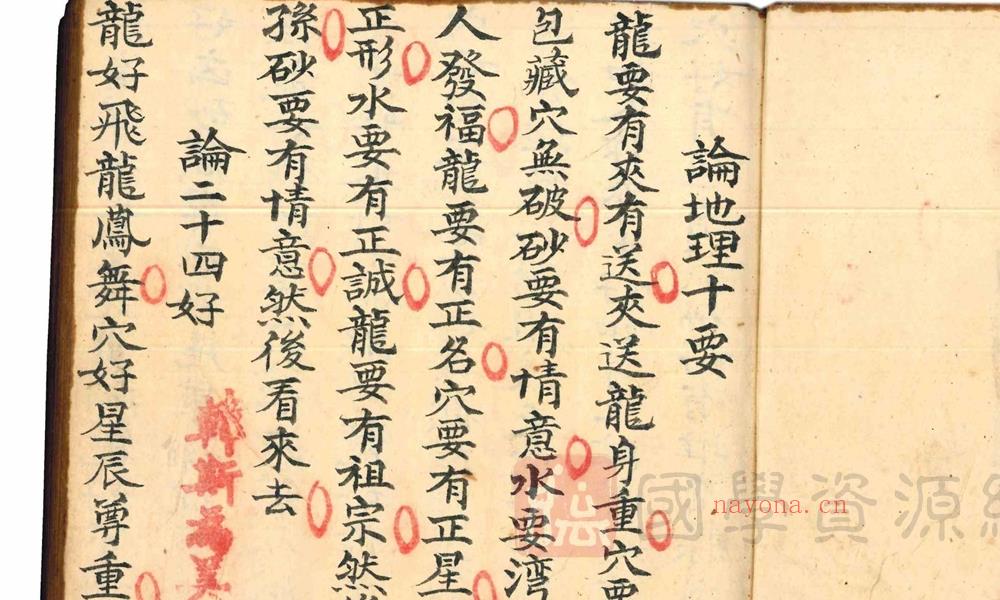 論地理十要
龍要有夾有送夾送龍身重穴要
包藏穴無破砂要有情意水要湾
人發福龍要有正名穴要有正星
正形水要有正誠龍要有祖宗然
孫砂要有情意然後看來去
論二十四好
龍好飛龍鳳舞穴好星辰尊重
國學資源
nayona.cn